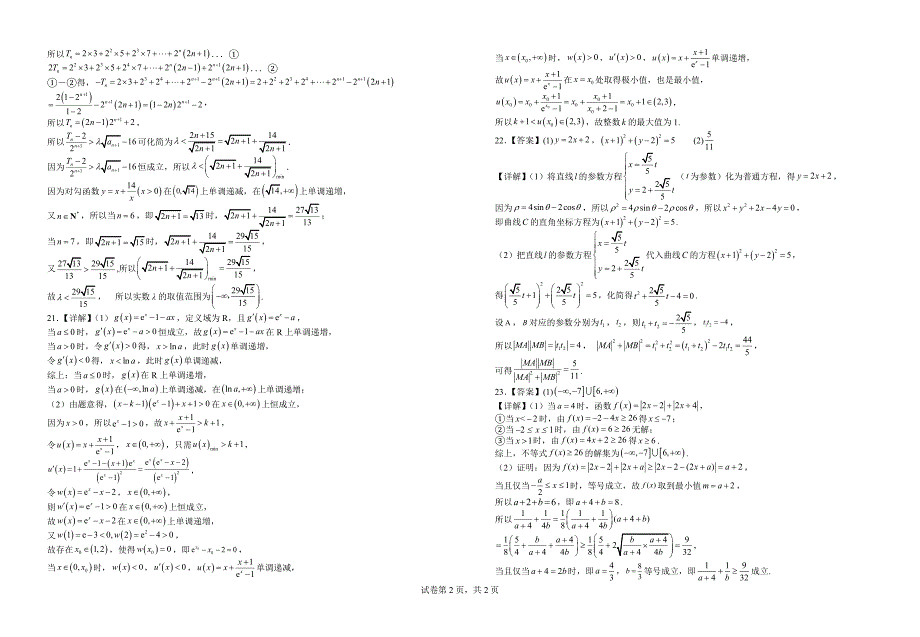 所以 T_n = 2×3+2²×5+2³×7+⋯+2ⁿ(2n+1)... ①
2T_n = 2²×3+2³×5+2⁴×7+⋯+2ⁿ(2n−1)+2ⁿ⁺¹(2n+1)... ②
①－②得，−T_n = 2×3+2³+2⁴+⋯+2ⁿ⁺¹−2ⁿ⁺¹(2n+1) = 2+2²+2³+2⁴+⋯+2ⁿ⁺¹−2ⁿ⁺¹(2n+1)
= 2(1−2ⁿ⁺¹)/(1−2) − 2ⁿ⁺¹(2n+1) = (1−2n)2ⁿ⁺¹−2，
所以 T_n = (2n−1)2ⁿ⁺¹+2．
所以 (T_n−2)/2ⁿ⁺¹ > λ√a_{n+1} −16 可化简为 λ < (2n+15)/√(2n+1) = √(2n+1) + 14/√(2n+1)．
因为 (T_n−2)/2ⁿ⁺¹ > λ√a_{n+1} −16 恒成立，所以 λ < (√(2n+1) + 14/√(2n+1))_min．
因为对勾函数 y = x+14/x (x>0) 在 (0,√14) 上单调递减，在 (√14,+∞) 上单调递增，
又 n∈N*，所以当 n=6，即 √(2n+1) = √13 时，√(2n+1) + 14/√(2n+1) = 27√13/13；
当 n=7，即 √(2n+1) = √15 时，√(2n+1) + 14/√(2n+1) = 29√15/15，
又 27√13/13 > 29√15/15,所以 (√(2n+1) + 14/√(2n+1))_min = 29√15/15，
故 λ < 29√15/15， 所以实数 λ 的取值范围为 (−∞, 29√15/15)．
21.【详解】（1） g(x) = eˣ−1−ax，定义域为 R，且 g′(x) = eˣ−a，
当 a≤0 时，g′(x) = eˣ−a>0 恒成立，故 g(x) = eˣ−1−ax 在 R 上单调递增，
当 a>0 时，令 g′(x)>0 得，x>ln a，此时 g(x) 单调递增，
令 g′(x)<0 得，x<ln a，此时 g(x) 单调递减，
综上：当 a≤0 时，g(x) 在 R 上单调递增，
当 a>0 时，g(x) 在 (−∞,ln a) 上单调递减，在 (ln a,+∞) 上单调递增；
（2）由题意得，(x−k−1)(eˣ−1)+x+1>0 在 x∈(0,+∞) 上恒成立，
因为 x>0，所以 eˣ−1>0，故 x+(x+1)/(eˣ−1) > k+1，
令 u(x) = x+(x+1)/(eˣ−1)，x∈(0,+∞)，只需 u(x)_min > k+1，
u′(x) = 1+(eˣ−1−(x+1)eˣ)/(eˣ−1)² = eˣ(eˣ−x−2)/(eˣ−1)²，
令 w(x) = eˣ−x−2，x∈(0,+∞)，
则 w′(x) = eˣ−1>0 在 x∈(0,+∞) 上恒成立，
故 w(x) = eˣ−x−2 在 x∈(0,+∞) 上单调递增，
又 w(1) = e−3<0, w(2) = e²−4>0，
故存在 x₀∈(1,2)，使得 w(x₀)=0，即 e^{x₀}−x₀−2=0，
当 x∈(0,x₀) 时，w(x)<0，u′(x)<0，u(x) = x+(x+1)/(eˣ−1) 单调递减，
当 x∈(x₀,+∞) 时，w(x)>0，u′(x)>0，u(x) = x+(x+1)/(eˣ−1) 单调递增，
故 u(x) = x+(x+1)/(eˣ−1) 在 x=x₀ 处取得极小值，也是最小值，
u(x₀) = x₀+(x₀+1)/(e^{x₀}−1) = x₀+(x₀+1)/(x₀+2−1) = x₀+1∈(2,3)，
所以 k+1<u(x₀)∈(2,3)，故整数 k 的最大值为 1.
22.【答案】(1) y=2x+2，(x+1)²+(y−2)²=5 (2) 5/11
【详解】（1）将直线 l 的参数方程 {x=√5/5 t, y=2+2√5/5 t （t 为参数）化为普通方程，得 y=2x+2，
因为 ρ=4sinθ−2cosθ，所以 ρ²=4ρsinθ−2ρcosθ，所以 x²+y²+2x−4y=0，
即曲线 C 的直角坐标方程为 (x+1)²+(y−2)²=5．
（2）把直线 l 的参数方程 {x=√5/5 t, y=2+2√5/5 t 代入曲线 C 的方程 (x+1)²+(y−2)²=5，
得 (√5/5 t+1)²+(2√5/5 t)²=5，化简得 t²+2√5/5 t−4=0．
设 A，B 对应的参数分别为 t₁，t₂，则 t₁+t₂=−2√5/5，t₁t₂=−4，
所以 |MA||MB|=|t₁t₂|=4， |MA|²+|MB|²=t₁²+t₂²=(t₁+t₂)²−2t₁t₂=44/5，
可得 |MA||MB|/(|MA|²+|MB|²)=5/11．
23.【答案】(1) (−∞,−7]∪[6,+∞)
【详解】（1）当 a=4 时，函数 f(x)=|2x−2|+|2x+4|，
①当 x<−2 时，由 f(x)=−2−4x≥26 得 x≤−7；
②当 −2≤x≤1 时，由 f(x)=6≥26 无解；
③当 x>1 时，由 f(x)=4x+2≥26 得 x≥6．
综上，不等式 f(x)≥26 的解集为 (−∞,−7]∪[6,+∞)．
（2）证明：因为 f(x)=|2x−2|+|2x+a|≥|2x−2−(2x+a)|=a+2，
当且仅当 −a/2≤x≤1 时，等号成立，故 f(x) 取到最小值 m=a+2，
所以 a+2+b=6，即 a+4+b=8．
所以 1/(a+4)+1/(4b)=1/8(1/(a+4)+1/(4b))(a+4+b)
=1/8(5/4+b/(a+4)+(a+4)/(4b))≥1/8(5/4+2√(b/(a+4)×(a+4)/(4b)))=9/32，
当且仅当 a+4=2b 时，即 a=4/3，b=8/3 等号成立，即 1/(a+4)+1/b≥9/32 成立.
试卷第 2 页，共 2 页